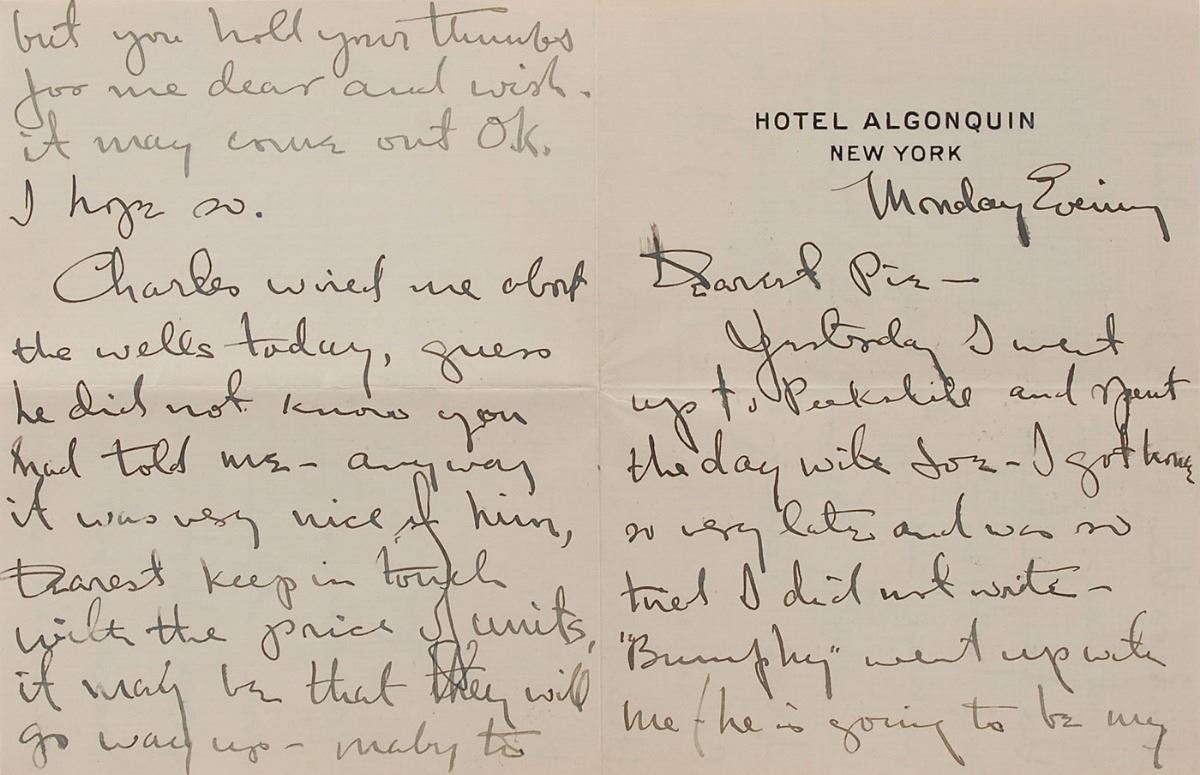 but you hold your thumbs
for me dear and wish -
it may come out O.K.
I hope so.
Charles wired me about
the wells today, guess
he did not know you
had told me - anyway
it was very nice of him,
Dearest keep in touch
with the price of units,
it may be that they will
go way up - maby to
HOTEL ALGONQUIN
NEW YORK
Monday Evening
Dearest Pie -
Yesterday I went
up to Peekskill and spent
the day with Joe - I got home
so very late and was so
tired I did not write -
"Bumphy" went up with
me (he is going to be my